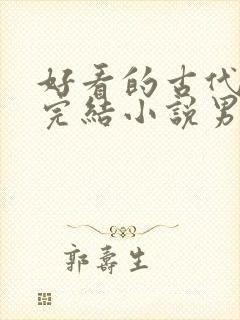 好看的古代
完結小說男
郭壽生